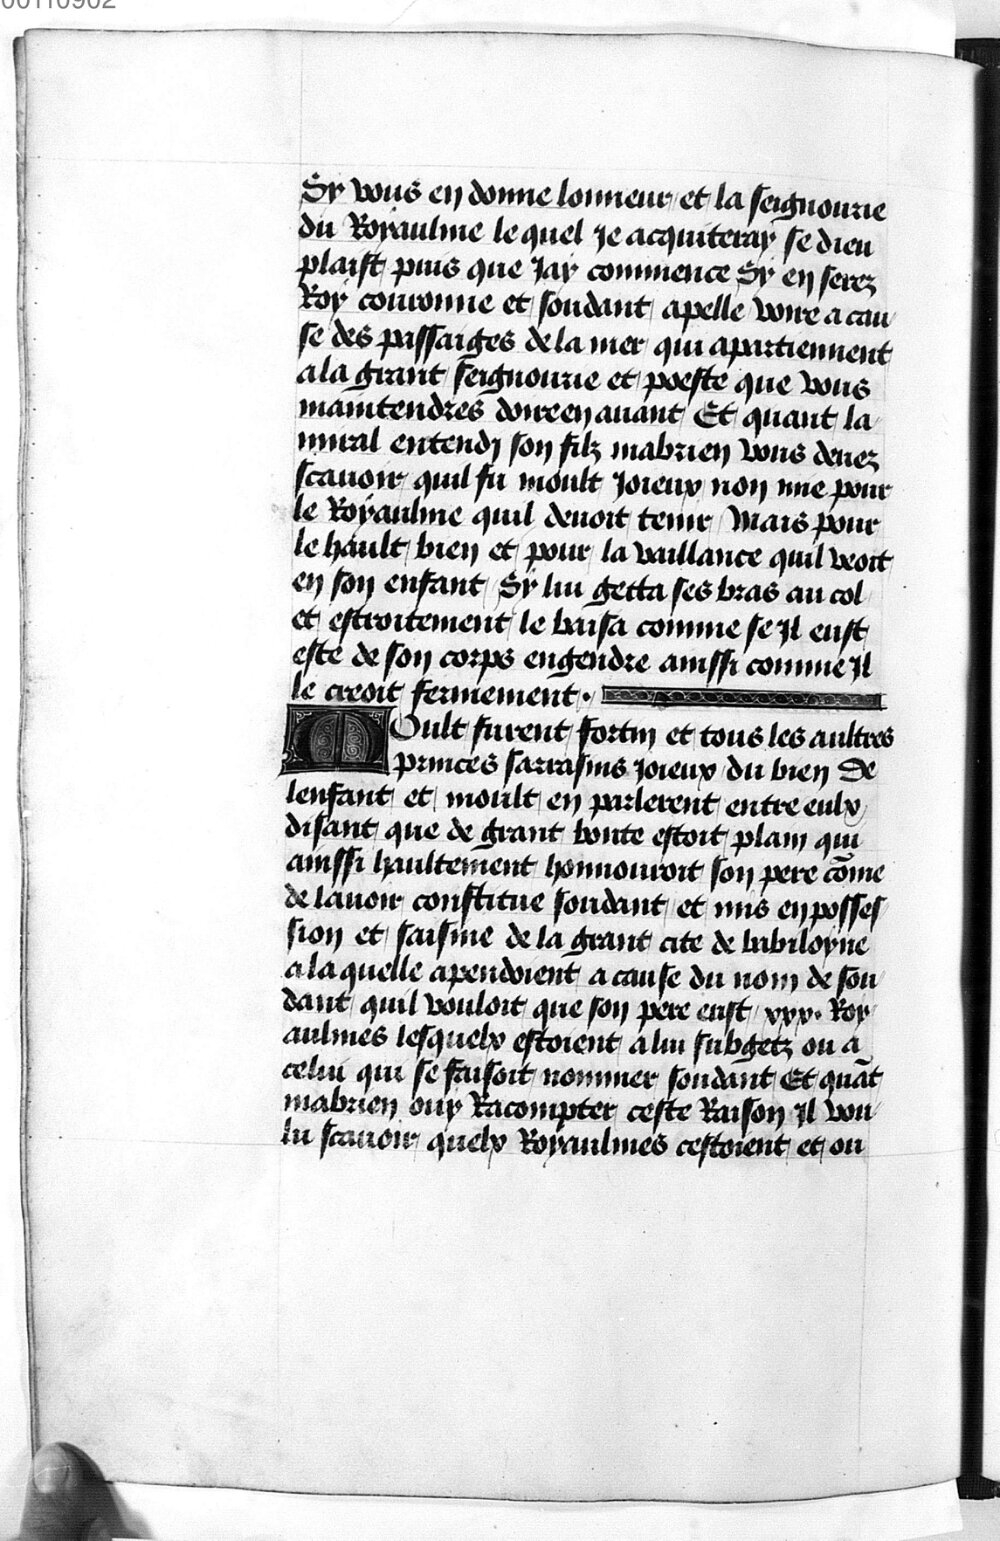 00110902
Sy vous en donne lonneur et la seignourie
du Royaulme le quel Je acquiteray se dieu
plaist puis que Jay commence Sy en serez
Roy couronne et soudant apelle voire a cau
se des passaiges de la mer qui apartiennent
a la grant seignourie et poeste que vous
maintendres doireenauant Et quant la
miral entendy son filz mabrien vous deuez
scauoir quil fu moult Joieux non mie pour
le Royaulme quil deuoit tenir Mais pour
le hault bien et pour la vaillance quil veoit
en son enfant Sy lui getta ses bras au col
et estroitement le baisa comme se Il eust
este de son corps engendre ainssi comme Il
le creoit fermement .
Moult furent fortin et tous les aultres
princes sarrasins Joieux du bien De
lenfant et moult en parlerent entre eulx
disant que de grant bonte estoit plain qui
ainssi haultement honnouroit son pere cõme
de lauoir constitue soudant et mis en posses
sion et saisine de la grant cite de babiloyne
a la quelle apendoient a cause du nom de sou
dant quil vouloit que son pere eust xxx. Roy
aulmes lesquelx estoient a lui subgetz ou a
celui qui se faisoit nommer soudant Et quãt
mabrien ouy Racompter ceste Raison Il vou
lu scauoir quelx Royaulmes cestoient et ou